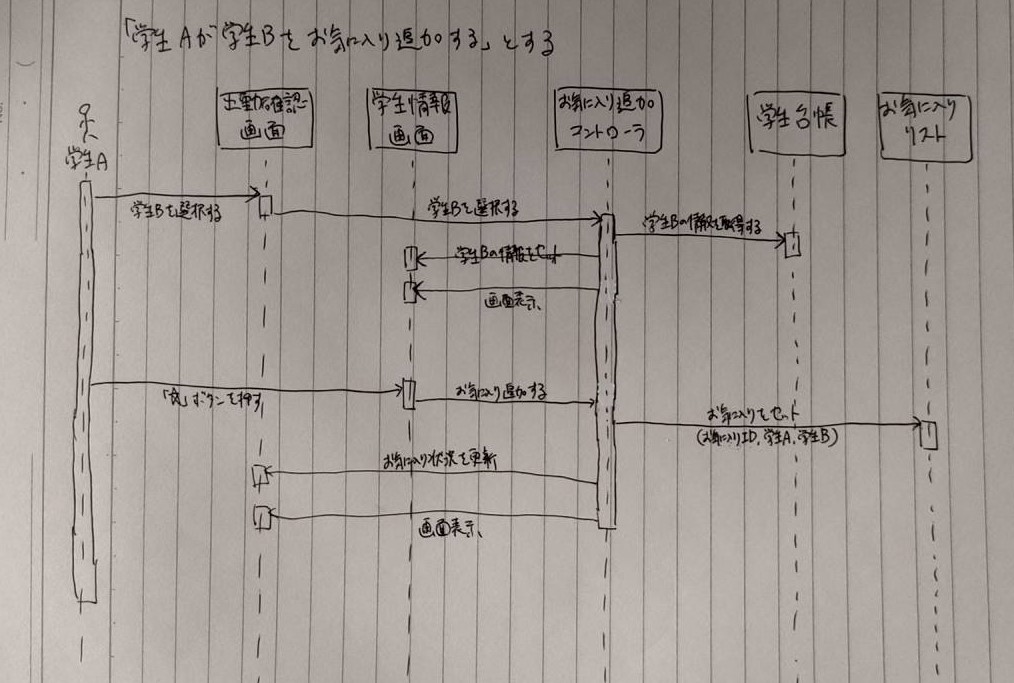 「学生Aが学生Bをお気に入り追加する」とする
学生A
出勤確認
画面
学生情報
画面
お気に入り追加
コントローラ
学生台帳
お気に入り
リスト
学生Bを選択する
学生Bを選択する
学生Bの情報を取得する
学生Bの情報をセット
画面表示
ボタンを押す
お気に入り追加する
お気に入りをセット
(お気に入りID, 学生A, 学生B)
お気に入り状況を更新
画面表示